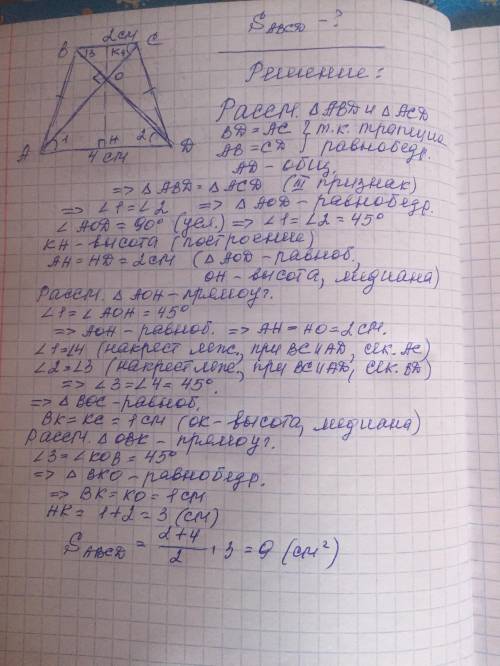 S ABCD - ?
Решение:
2 см
B 3 K 4 C
O
A 1 H 2 D
4 см
Рассм. △ABD и △ACD
BD = AC } т.к. трапеция
AB = CD } равнобедр.
AD - общ.
=> △ABD = △ACD (III признак)
=> ∠1 = ∠2 => △AOD - равнобедр.
∠AOD = 90° (усл.) => ∠1 = ∠2 = 45°
KH - высота (построение)
AH = HD = 2 см (△AOD - равноб,
OH - высота, медиана)
Рассм. △AOH - прямоуг.
∠1 = ∠AOH = 45°
=> AOH - равноб. => AH = HO = 2 см.
∠1 = ∠4 (накрест леж., при BC || AD, сек. AC)
∠2 = ∠3 (накрест леж, при BC || AD, сек. BD)
=> ∠3 = ∠4 = 45°.
=> △BOC - равноб.
BK = KC = 1 см (OK - высота, медиана)
Рассм. △OBK - прямоуг.
∠3 = ∠KOB = 45°
=> △BKO - равнобедр.
=> BK = KO = 1 см
HK = 1 + 2 = 3 (см)
S ABCD = (2+4)/2 · 3 = 9 (см²)